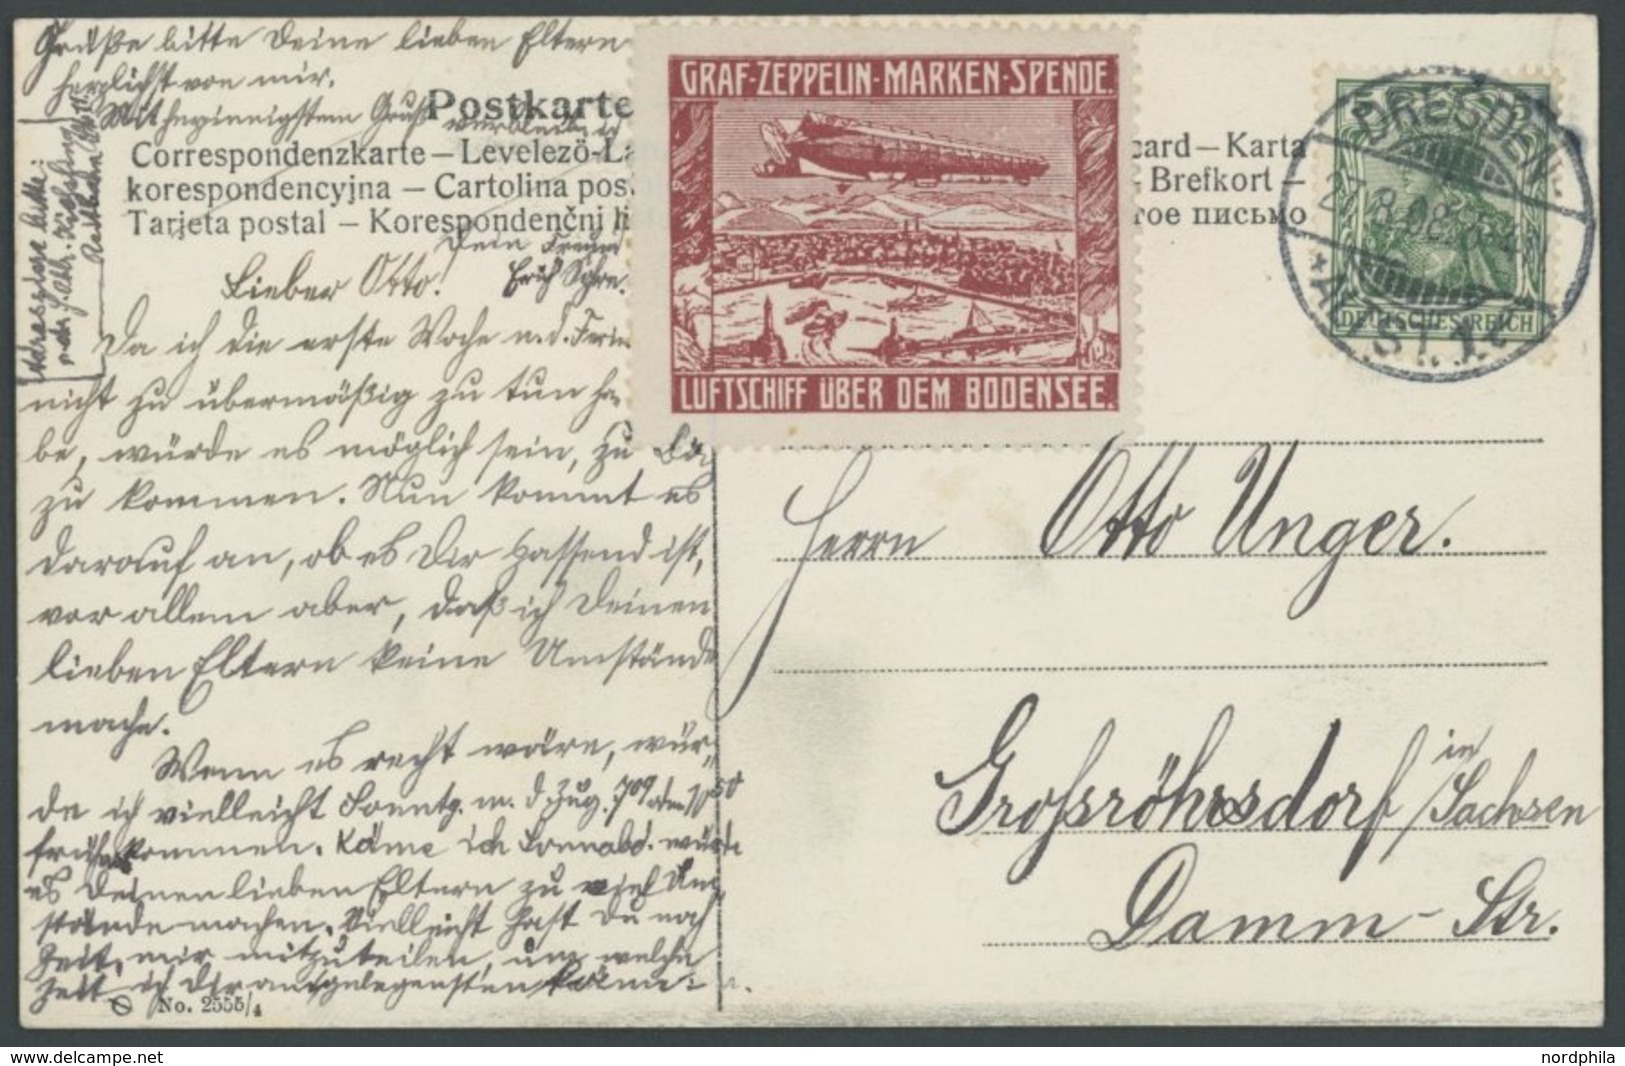 Grüße bitte Deine lieben Eltern
herzlichst von mir.
Mit herzinnigstem Gruß verbleibe ich
Dein Freund
Erich
Postkarte
Correspondenzkarte – Levelezö-L
korespondencyjna – Cartolina pos
Tarjeta postal – Korespondenčni li
card – Karta
– Brefkort –
тое письмо
Adresse bitte:
GRAF-ZEPPELIN-MARKEN-SPENDE.
LUFTSCHIFF ÜBER DEM BODENSEE.
DRESDEN
27.8.08.
* ALTST. 1 c
DEUTSCHES REICH
Lieber Otto!
Da ich die erste Woche n. d. Ferien
nicht zu übermäßig zu tun ha-
be, würde es möglich sein, zu
zu kommen. Nun kommt es
darauf an, ob es Dir passend ist,
vor allem aber, daß ich Deinen
lieben Eltern keine Umstände
mache.
Wenn es recht wäre, wür-
de ich vielleicht Sonntg. m. d. Zug. 7⁰⁹ oder 10⁵⁰
früh kommen. Käme ich Sonnabd. würde
es Deinen lieben Eltern zu viel Um-
stände machen. Vielleicht hast Du noch
Zeit, mir mitzuteilen, um welche
Zeit ich Dir am gelegensten käme.
No. 2555/4
Herrn Otto Unger.
Grossröhrsdorf in Sachsen
Damm-Str.
www.delcampe.net
nordphila